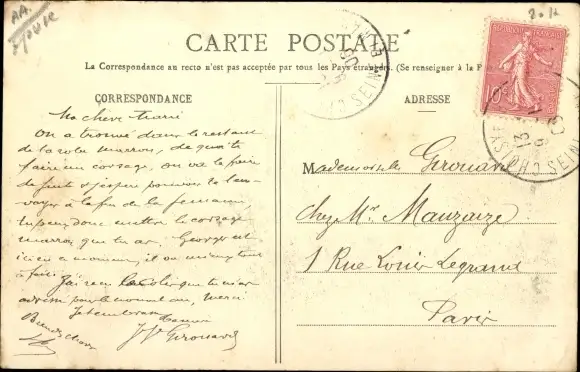 CARTE POSTALE
La Correspondance au recto n'est pas acceptée par tous les Pays étrangers. (Se renseigner à la P
CORRESPONDANCE
ADRESSE
Ma chère Marie
On a trouvé dans le restant
de la robe marron, de quoi te
faire un corsage, on va le faire
de suite j'espère pouvoir te l'en-
voyer à la fin de la semaine,
tu peux donc mettre le corsage
marron que tu as, Georges est
ici en ce moment, il va mieux tout
à fait.
J'ai reçu que tu m'as
pour le nouvel an, merci
Je t'embrasse
J Girouard
Mademoiselle Girouard
chez Mr. Mauzaize
1 Rue Louis Legrand
Paris